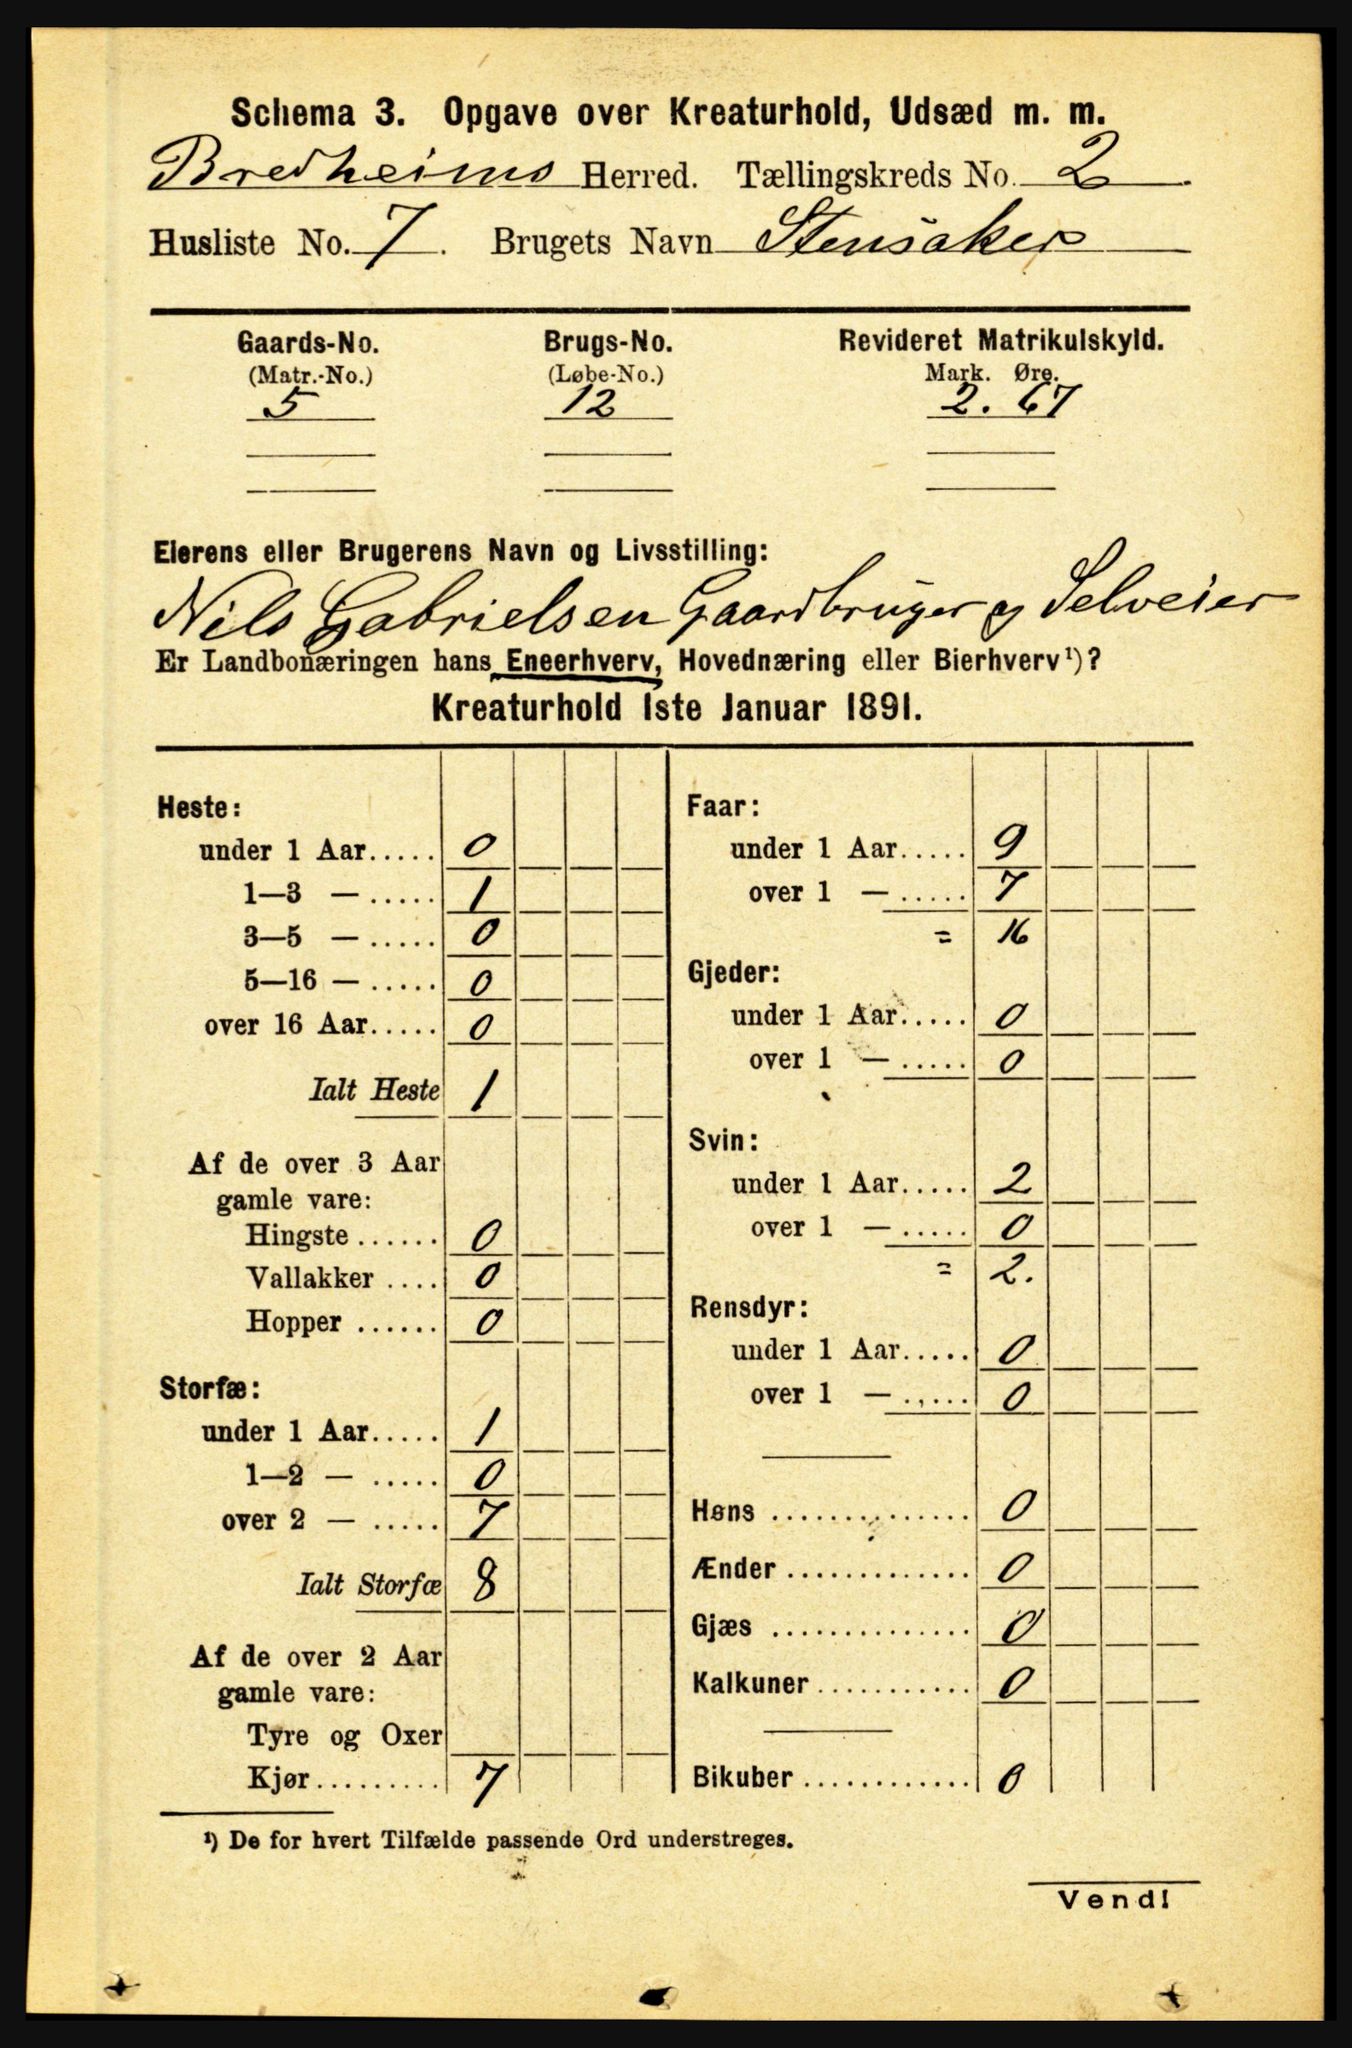 Schema 3. Opgave over Kreaturhold, Udsæd m. m.
Bredheims Herred. Tællingskreds No. 2.
Husliste No. 7. Brugets Navn Stensaker
Gaards-No. Brugs-No. Revideret Matrikulskyld.
(Matr.-No.) (Løbe-No.) Mark. Øre.
5 12 2. 67
Eierens eller Brugerens Navn og Livsstilling:
Nils Gabrielsen Gaardbruger og Selveier
Er Landbonæringen hans Eneerhverv, Hovednæring eller Bierhverv¹)?
Kreaturhold 1ste Januar 1891.
Heste:
under 1 Aar..... 0
1—3 — ..... 1
3—5 — ..... 0
5—16 — ..... 0
over 16 Aar..... 0
Ialt Heste 1
Af de over 3 Aar
gamle vare:
Hingste ...... 0
Vallakker .... 0
Hopper ...... 0
Storfæ:
under 1 Aar..... 1
1—2 — ..... 0
over 2 — ..... 7
Ialt Storfæ 8
Af de over 2 Aar
gamle vare:
Tyre og Oxer
Kjør......... 7
Faar:
under 1 Aar..... 9
over 1 — ..... 7
= 16
Gjeder:
under 1 Aar..... 0
over 1 — ..... 0
Svin:
under 1 Aar..... 2
over 1 — ..... 0
= 2.
Rensdyr:
under 1 Aar..... 0
over 1 — ..... 0
Høns .............. 0
Ænder ............. 0
Gjæs .............. 0
Kalkuner ........... 0
Bikuber ............ 0
¹) De for hvert Tilfælde passende Ord understreges.
Vend!